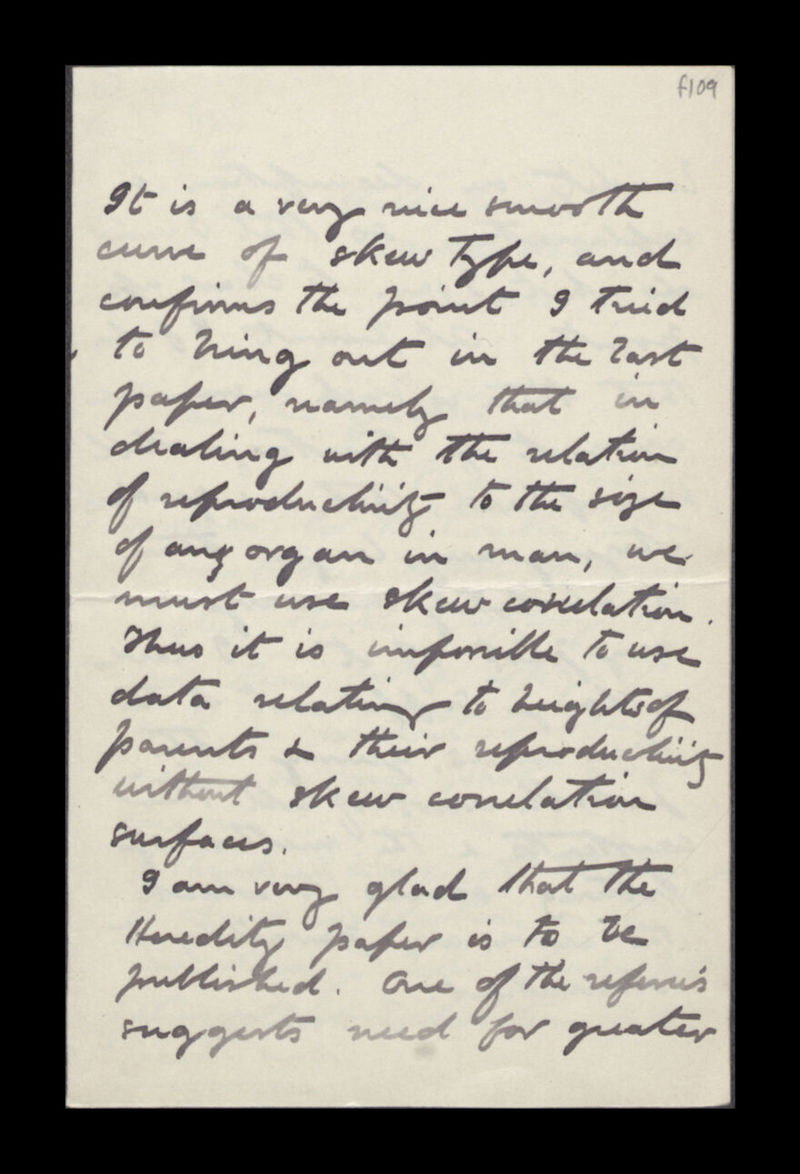 f109
It is a very nice smooth
curve of skew type, and
confirms the point I tried
to bring out in the last
paper, namely that in
dealing with the relation
of reproductivity to the size
of any organ in man, we
must use skew correlation.
Thus it is impossible to use
data relating to heights of
parents & their reproductivity
without skew correlation
surfaces.
I am very glad that the
Heredity paper is to be
published. One of the referee's
suggests need for greater